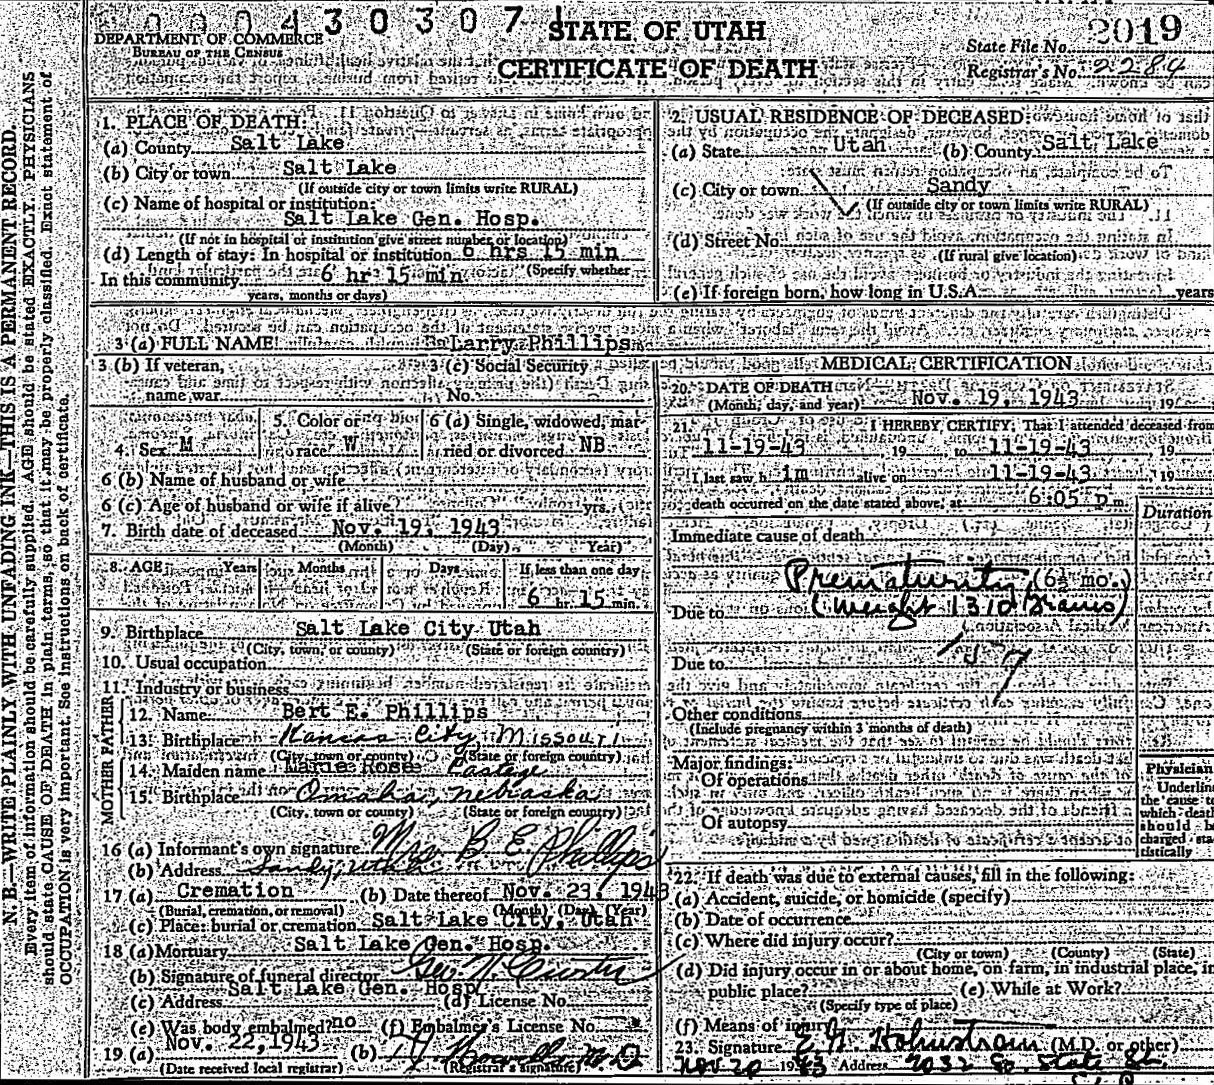 N. B.—WRITE PLAINLY, WITH UNFADING INK—THIS IS A PERMANENT RECORD.
Every item of information should be carefully supplied. AGE should be stated EXACTLY. PHYSICIANS
should state CAUSE OF DEATH in plain terms, so that it may be properly classified. Exact statement of
OCCUPATION is very important. See instructions on back of certificate.
0 0 0 4 3 0 3 0 7
DEPARTMENT OF COMMERCE
BUREAU OF THE CENSUS
STATE OF UTAH
CERTIFICATE OF DEATH
2019
State File No.
Registrar's No. 2284
1. PLACE OF DEATH:
(a) County Salt Lake
(b) City or town Salt Lake
(If outside city or town limits write RURAL)
(c) Name of hospital or institution:
Salt Lake Gen. Hosp.
(If not in hospital or institution give street number or location)
(d) Length of stay: In hospital or institution 6 hrs 15 min
(Specify whether
In this community 6 hr 15 min
years, months or days)
2. USUAL RESIDENCE OF DECEASED:
(a) State Utah (b) County Salt Lake
(c) City or town Sandy
(If outside city or town limits write RURAL)
(d) Street No.
(If rural give location)
(e) If foreign born, how long in U.S.A. years
3 (a) FULL NAME Larry Phillips
3 (b) If veteran, name war
3 (c) Social Security No.
4. Sex M
5. Color or race W
6 (a) Single, widowed, married or divorced NB
6 (b) Name of husband or wife
6 (c) Age of husband or wife if alive yrs.
7. Birth date of deceased Nov. 19, 1943
(Month) (Day) Year)
8. AGE Years Months Days If less than one day
6 hr. 15 min.
9. Birthplace Salt Lake City Utah
(City, town, or county) (State or foreign country)
10. Usual occupation
11. Industry or business
FATHER
12. Name Bert E. Phillips
13. Birthplace Kansas City, Missouri
(City, town or county) (State or foreign country)
MOTHER
14. Maiden name Marie Rose
15. Birthplace Omaha, Nebraska
(City, town or county) (State or foreign country)
16 (a) Informant's own signature Mrs B E Phillips
(b) Address Sandy, Utah
17 (a) Cremation (b) Date thereof Nov. 23, 1943
(Burial, cremation, or removal) (Month) (Day) (Year)
(c) Place: burial or cremation Salt Lake City, Utah
18 (a) Mortuary Salt Lake Gen. Hosp.
(b) Signature of funeral director
(c) Address Salt Lake Gen. Hosp (d) License No.
(e) Was body embalmed? no (f) Embalmer's License No.
19 (a) Nov. 22, 1943 (b)
(Date received local registrar) (Registrar's signature)
MEDICAL CERTIFICATION
20. DATE OF DEATH
(Month, day, and year) Nov. 19, 1943 19
21. I HEREBY CERTIFY: That I attended deceased from
11-19-43 19 to 11-19-43, 19
I last saw h im alive on 11-19-43, 19
death occurred on the date stated above, at 6:05 p.m.
Duration
Immediate cause of death
Prematurity (6½ mo.)
Due to (Weight 1310 Grams)
157
Due to
Other conditions
(Include pregnancy within 3 months of death)
Major findings:
Of operations
Of autopsy
Physician
Underline
the cause to
which death
should be
charged sta-
tistically
22. If death was due to external causes, fill in the following:
(a) Accident, suicide, or homicide (specify)
(b) Date of occurrence
(c) Where did injury occur?
(City or town) (County) (State)
(d) Did injury occur in or about home, on farm, in industrial place, in
public place? (e) While at Work?
(Specify type of place)
(f) Means of injury
23. Signature (M.D. or other)
Nov 20 1943 Address 2032 So. State St.